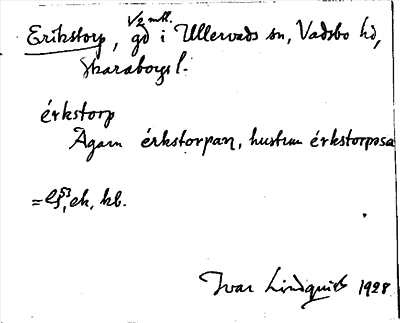 1/2 mtl.
Erikstorp, gd i Ullervads sn, Vadsbo hd,
Skaraborgs l.
érkstorp
Ägarn érkstorparn, hustrun érkstorpssa
ek, kb.
Ivar Lindquist 1928